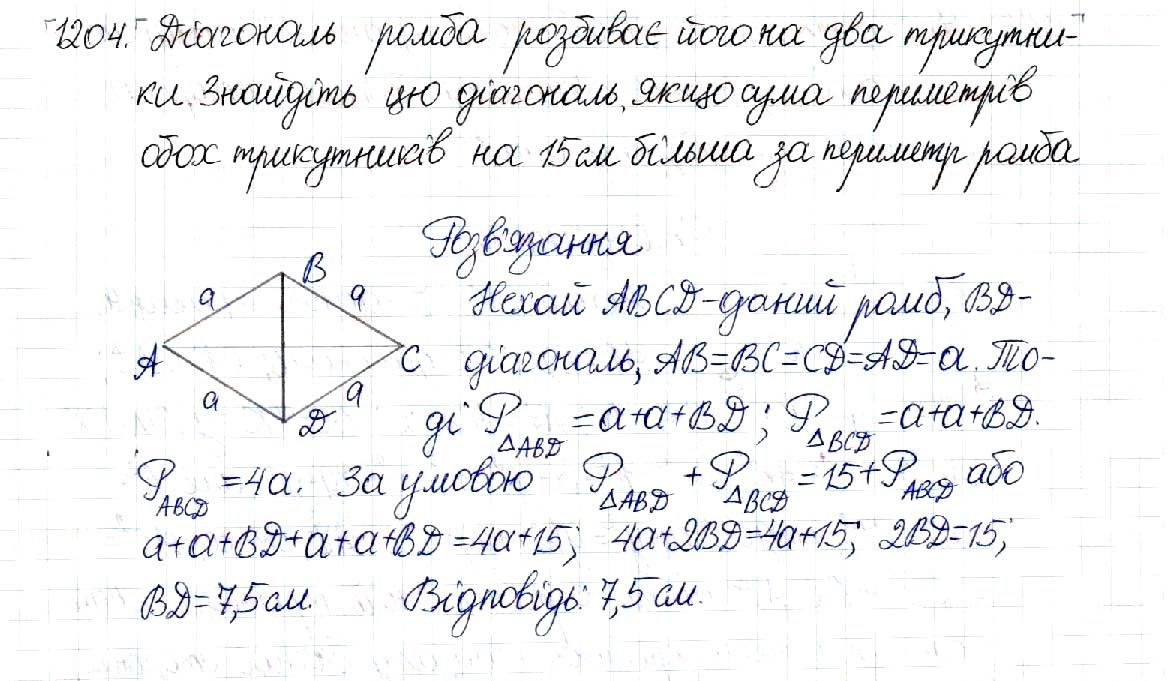 1204. Діагональ ромба розбиває його на два трикутни-
ки. Знайдіть цю діагональ, якщо сума периметрів
обох трикутників на 15 см більша за периметр ромба
Розв'язання
B
a a
Нехай ABCD - даний ромб, BD -
A C
діагональ, AB=BC=CD=AD=a. То-
a a
D
ді P△ABD = a+a+BD; P△BCD = a+a+BD.
PABCD = 4a. За умовою P△ABD + P△BCD = 15 + PABCD або
a+a+BD+a+a+BD = 4a+15; 4a+2BD=4a+15; 2BD=15;
BD = 7,5 см. Відповідь: 7,5 см.